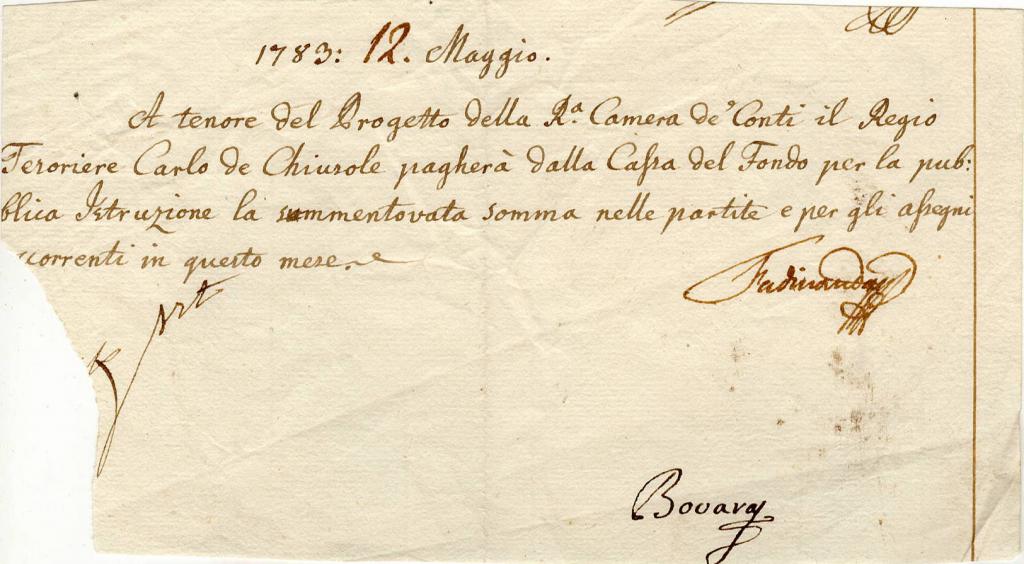 1783: 12. Maggio.
A tenore del Progetto della R.ª Camera de' Conti il Regio
Tesoriere Carlo de Chiusole pagherà dalla Cassa del Fondo per la pub:
blica Istruzione la summentovata somma nelle partite e per gli assegni
correnti in questo mese.
Ferdinando
Bovara